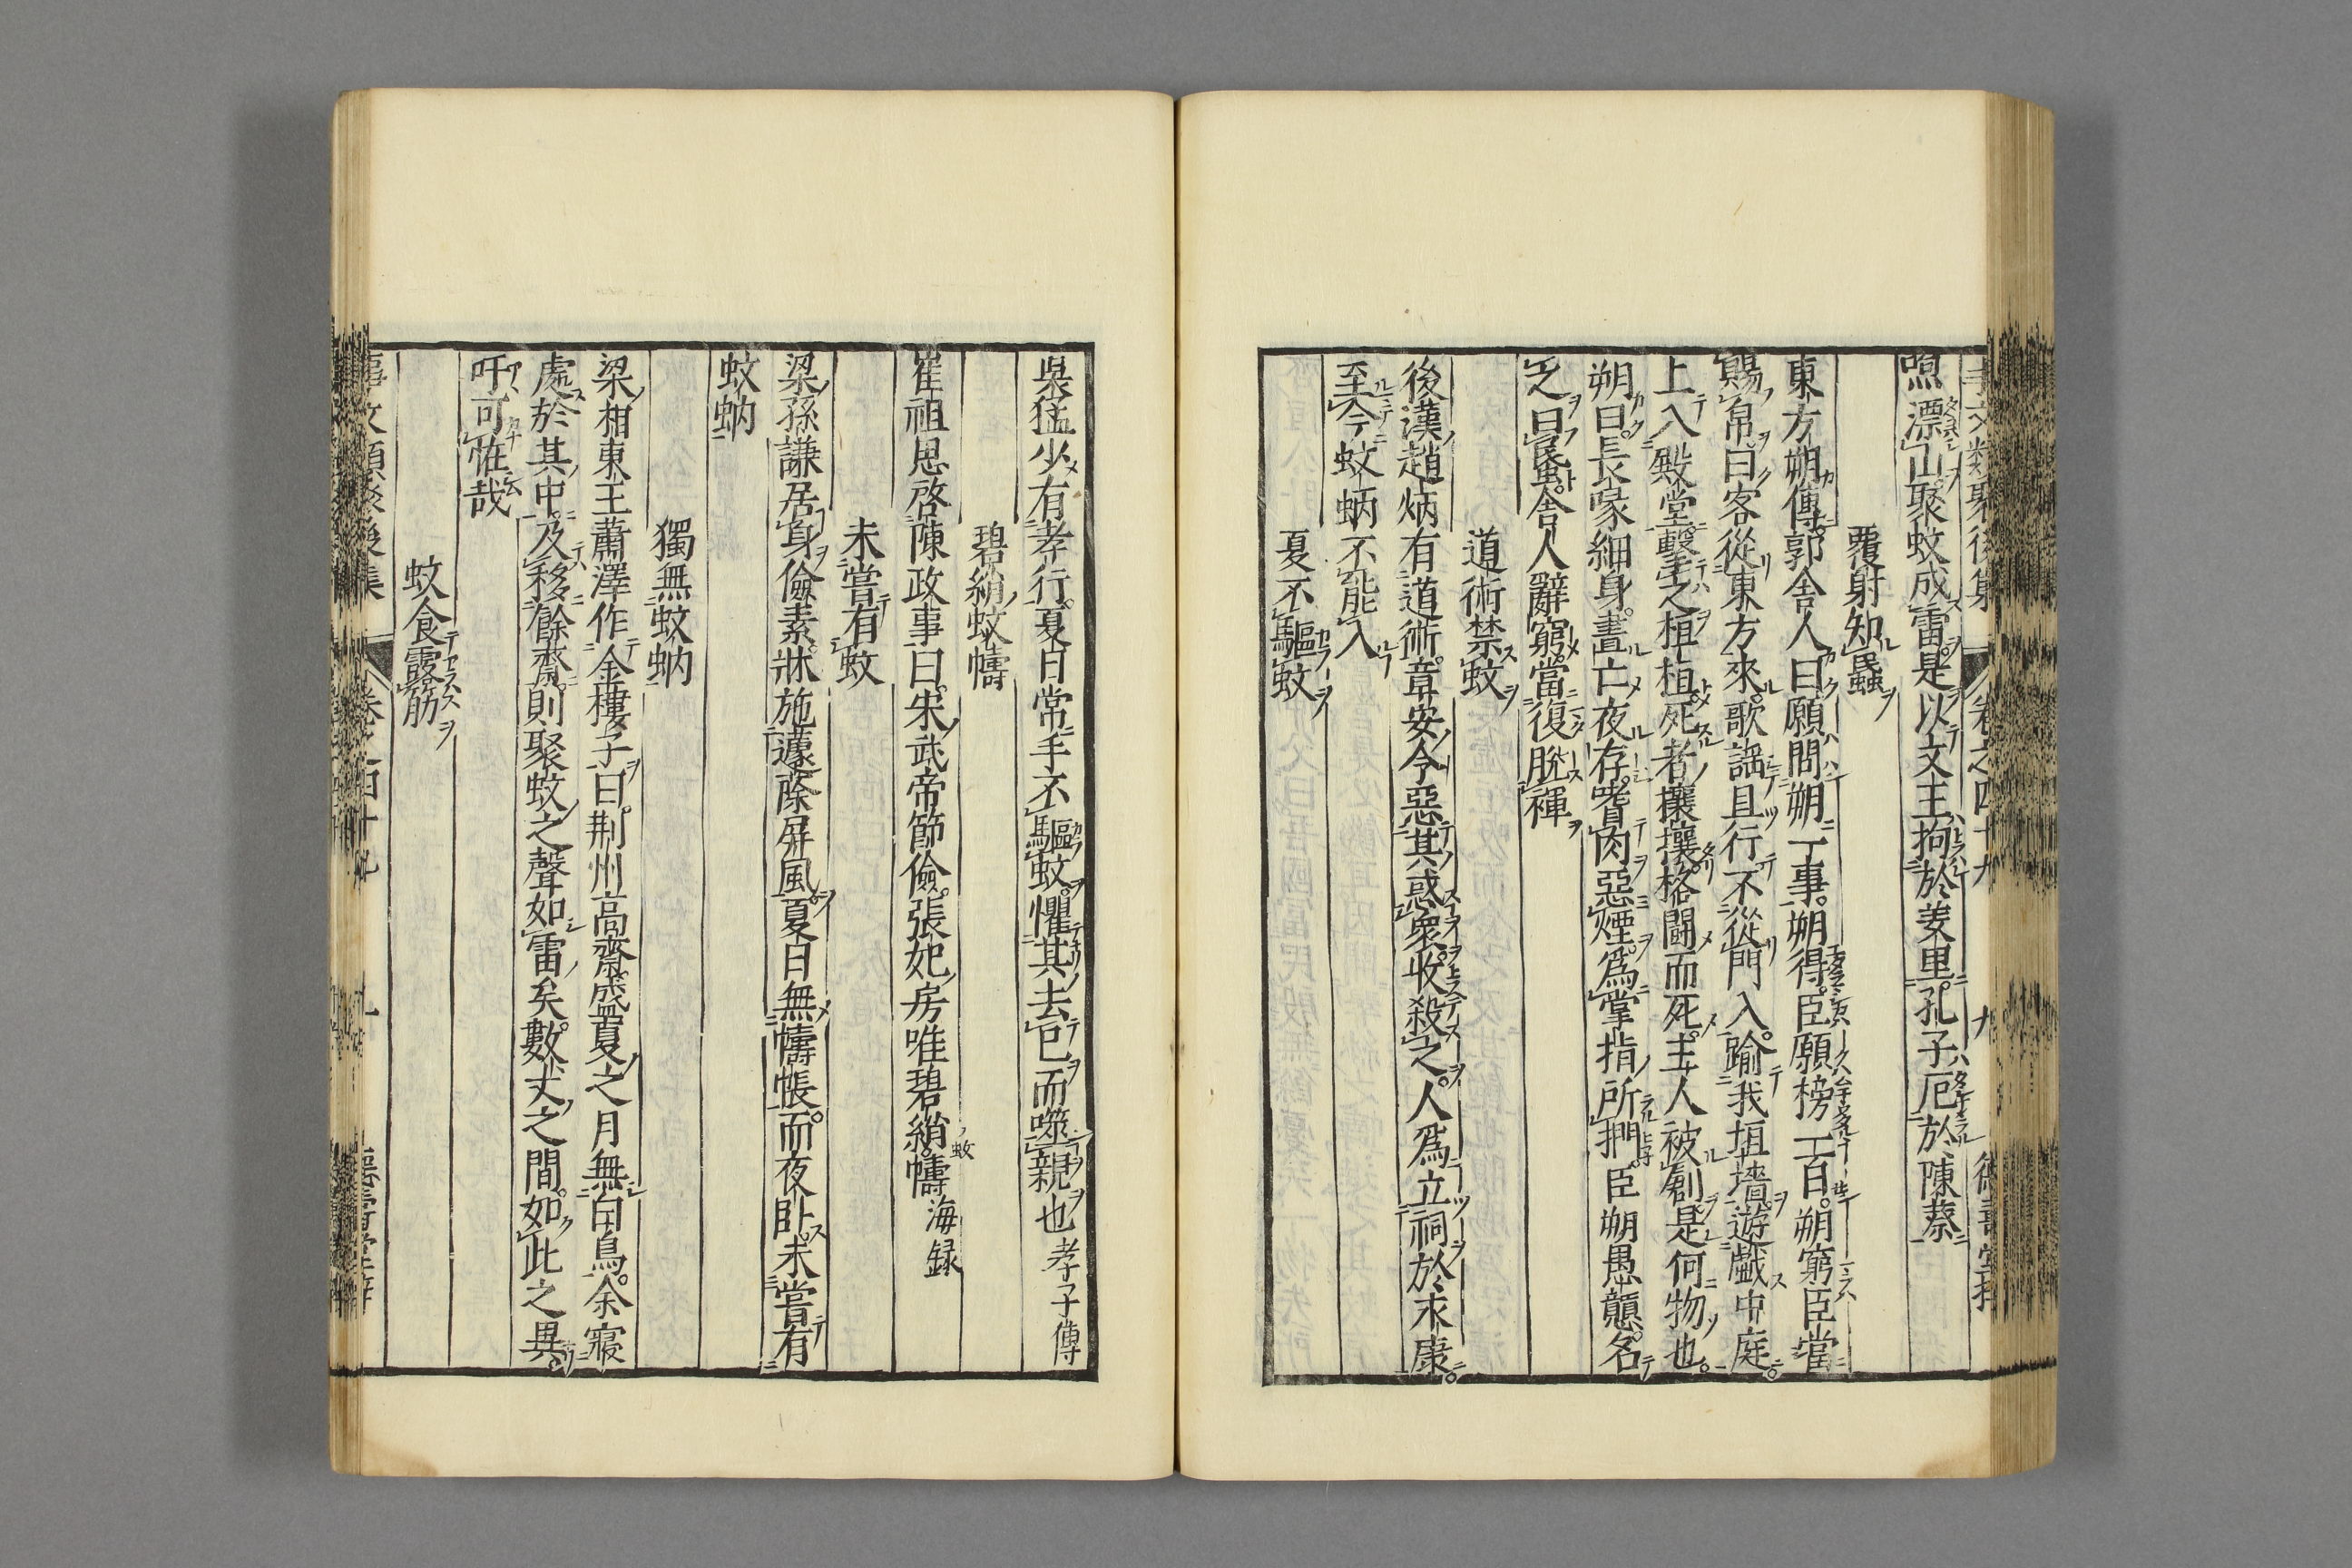 事文類聚後集 卷之四十九 九 德壽堂梓
煦漂山聚蚊成雷是以文王拘於羑里孔子厄於陳蔡
覆射知蟁
東方朔傳郭舍人曰願問朔一事朔得臣願榜一百朔窮臣當
賜帛曰客從東方來歌謡且行不從門入踰我垣墻遊戯中庭
上入殿堂擊之桓桓死者攘攘格鬪而死主人被創是何物也
朔曰長喙細身晝亡夜存嗜肉惡煙爲掌指所捫臣朔愚戇名
之曰蟁舍人辭窮當復脱褌
道術禁蚊
後漢趙炳有道術章安令惡其惑衆收殺之人爲立祠於永康
至今蚊蚋不能入
夏不驅蚊
吳猛少有孝行夏日常手不驅蚊懼其去己而噬親也 孝子傳
碧綃蚊幬
崔祖思啓陳政事曰宋武帝節儉張妃房唯碧綃蚊幬 海録
未嘗有蚊
梁孫謙居身儉素牀施蘧蒢屏風夏日無幬帳而夜卧未嘗有
蚊蚋
獨無蚊蚋
梁相東王蕭澤作金樓子曰荆州高齋盛夏之月無白鳥余寢
處於其中及移餘齋則聚蚊之聲如雷矣數丈之間如此之異
吁可恠哉
蚊食露筋
事文類聚後集 卷之四十九 九 德壽堂梓